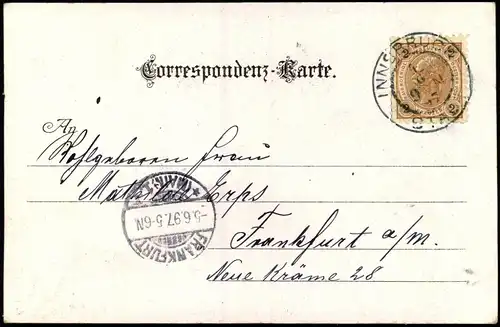 Correspondenz-Karte.
INNSBRUCK
STADT
An
Wohlgeboren Frau
Mathilde Erps
FRANKFURT (MAIN) 1
-5.6.97.5-6N
Frankfurt a/m.
Neue Kräme 28